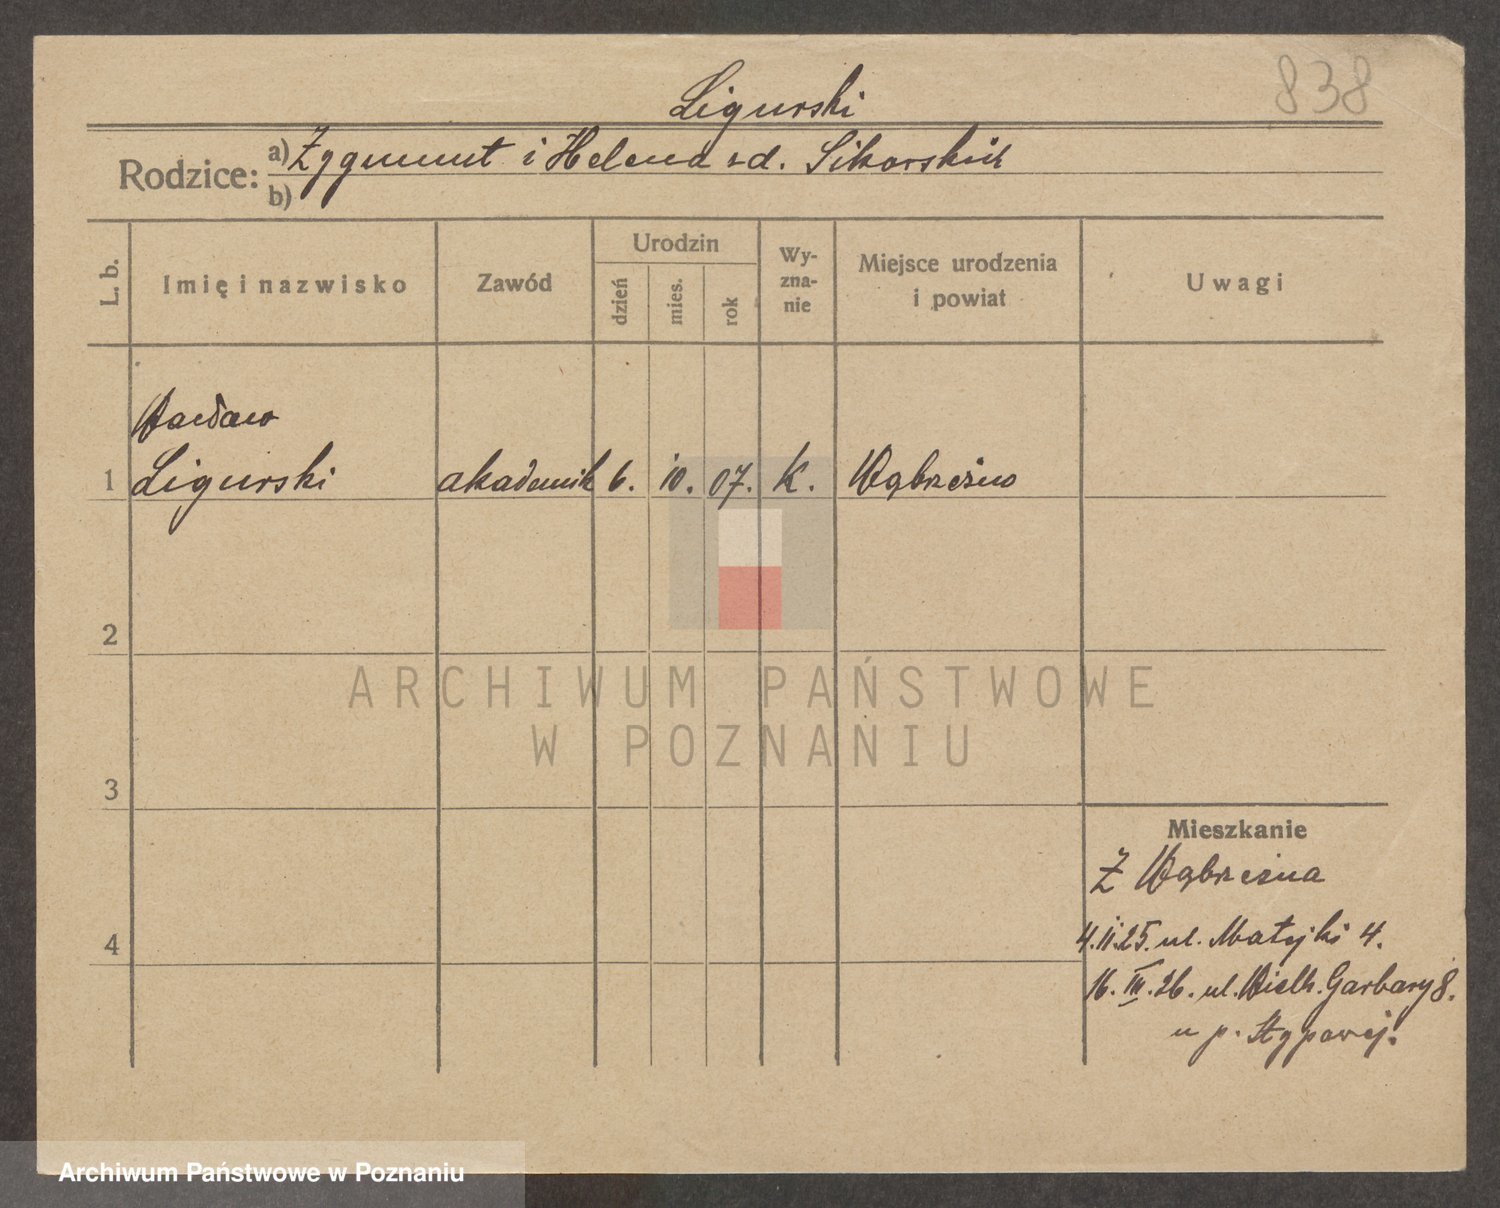 838
Ligurski
Rodzice: a) Zygmunt i Helena zd. Sikorskich
b)
L. b.
Imię i nazwisko
Zawód
Urodzin
dzień
mies.
rok
Wy-
zna-
nie
Miejsce urodzenia
i powiat
Uwagi
Wacław
1 Ligurski akademik 6. 10. 07. K. Wąbrzeźno
2
3
4
Mieszkanie
Z Wąbrzeźna
4.II.25. ul. Matejki 4.
16.III.26. ul. Wielk. Garbary 8.
u p.
ARCHIWUM PAŃSTWOWE
W POZNANIU
Archiwum Państwowe w Poznaniu